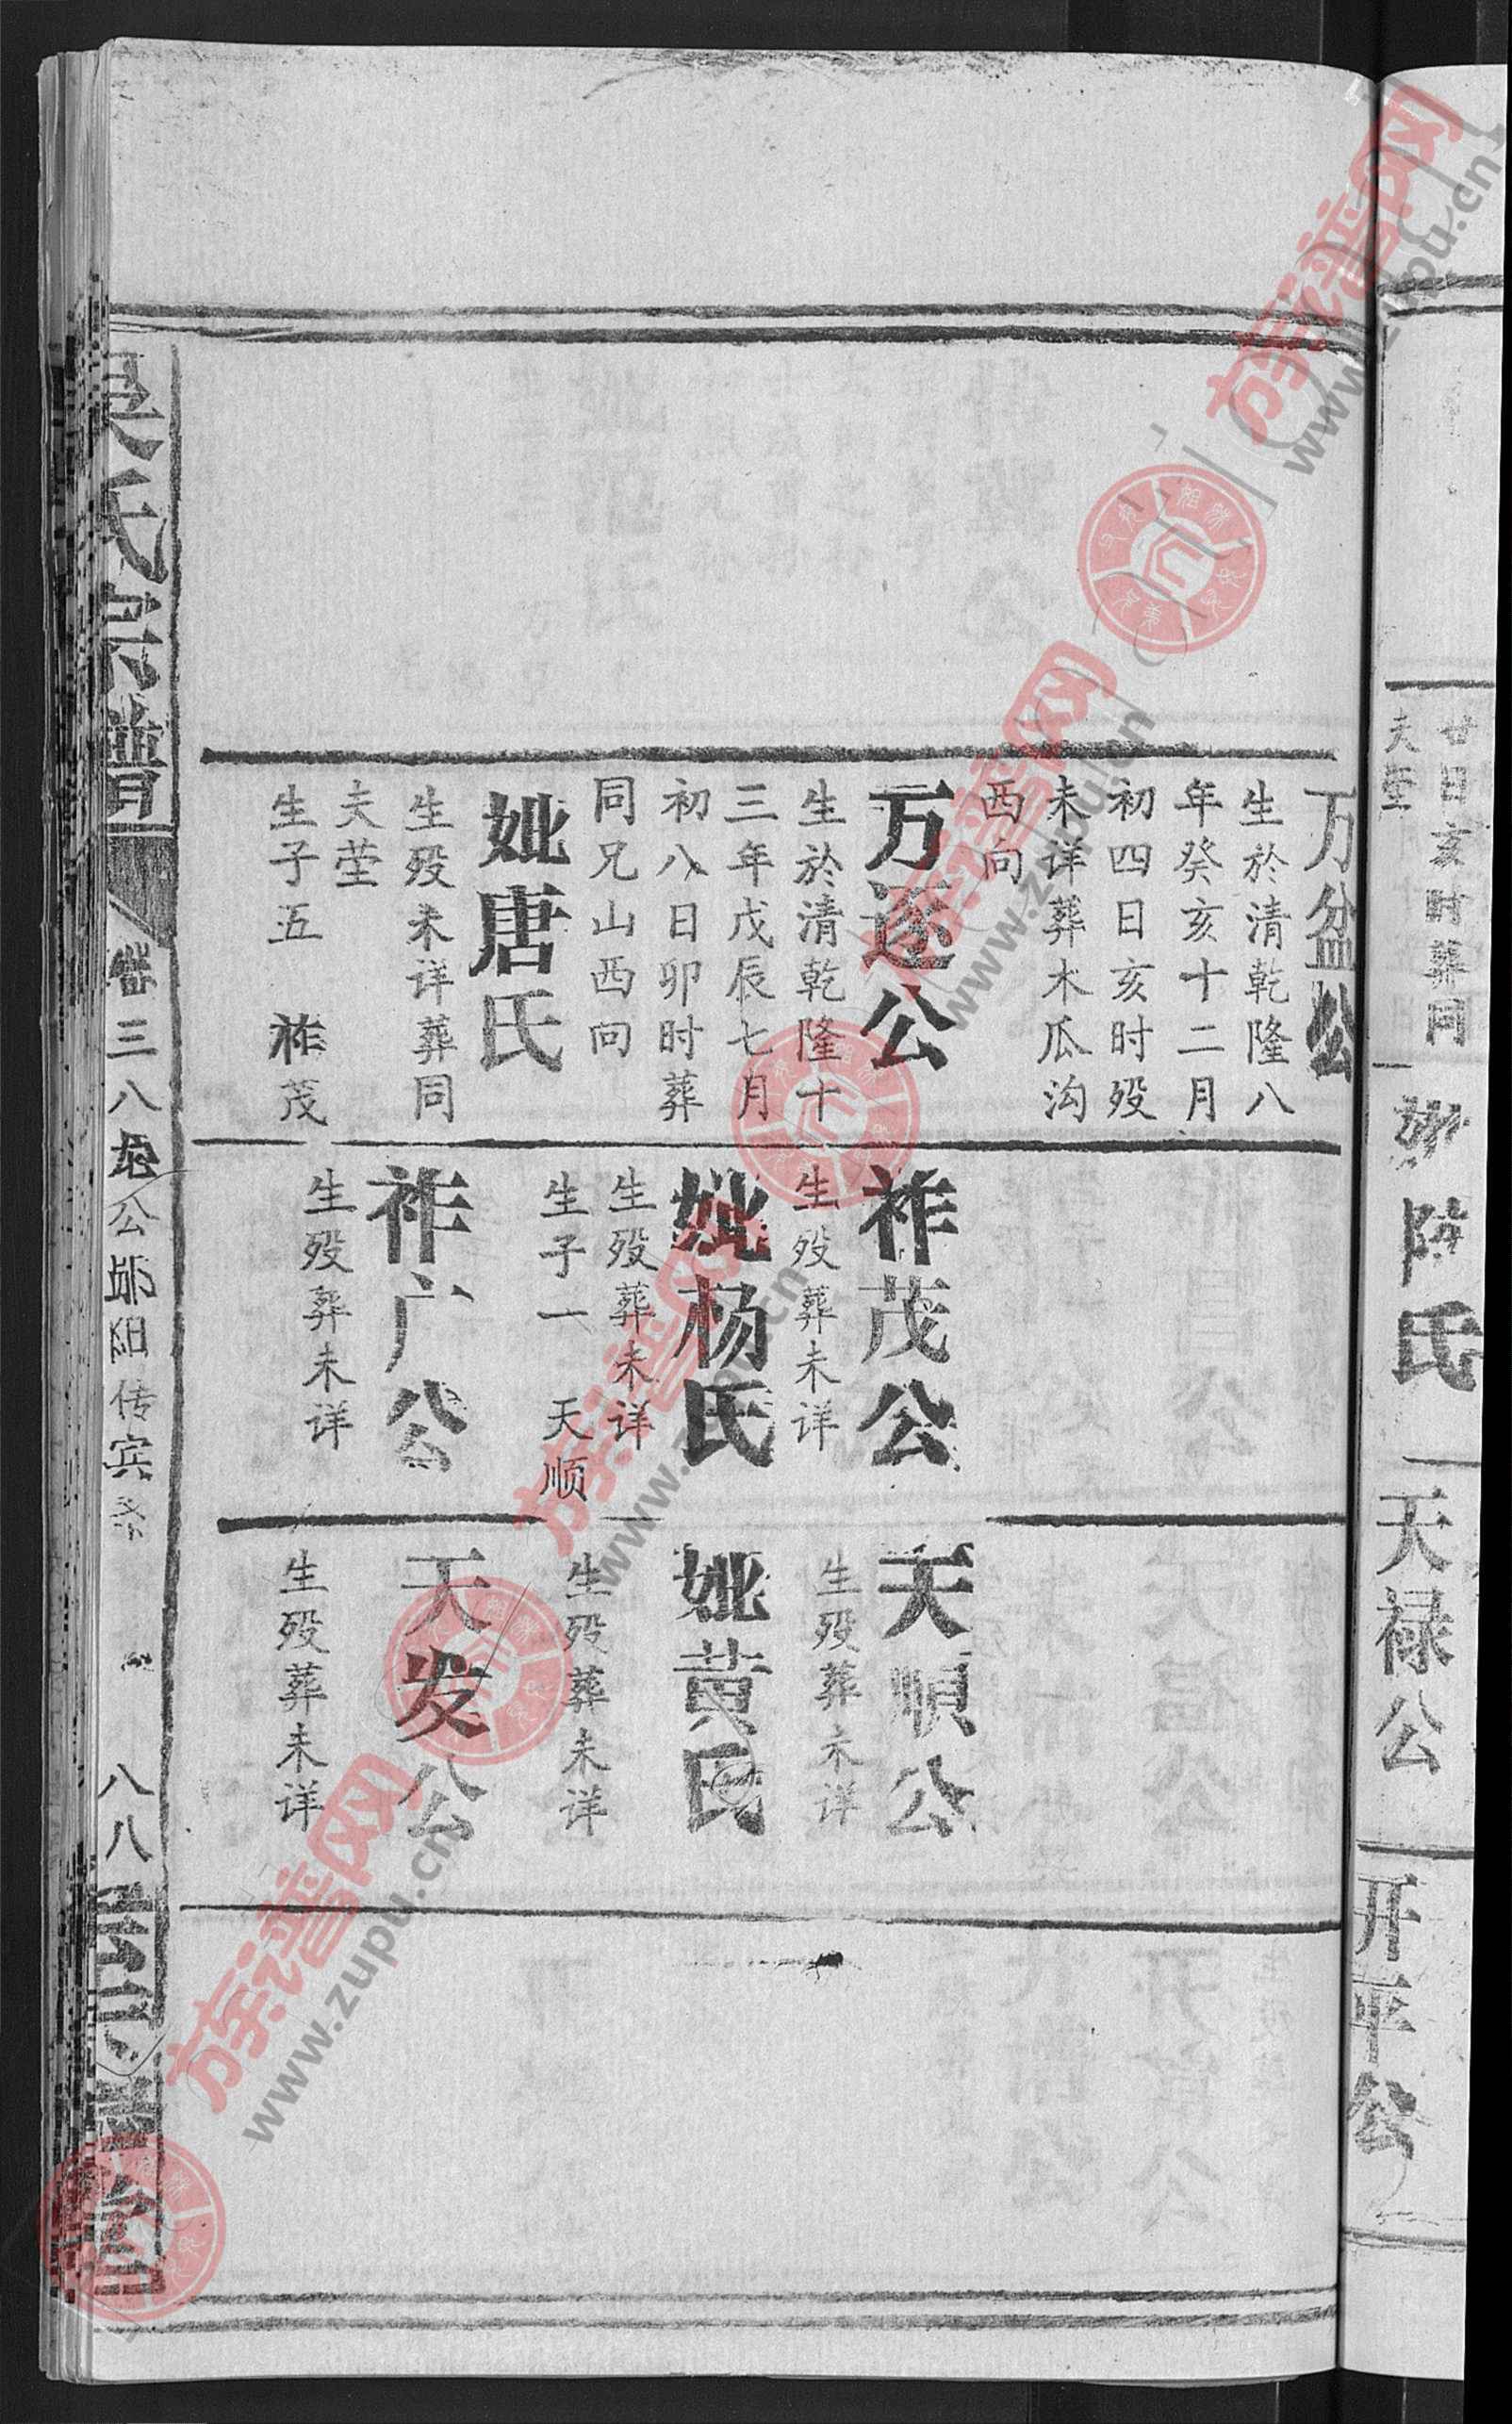 廿日亥时葬同
夫茔
陈氏
天禄公
开平公
万盆公
生於清乾隆八
年癸亥十二月
初四日亥时殁
未详葬木瓜沟
西向
万逐公
生於清乾隆十
三年戊辰七月
初八日卯时葬
同兄山西向
妣唐氏
生殁未详葬同
夫茔
生子五 祚茂
祚茂公
生殁葬未详
妣杨氏
生殁葬未详
生子一 天顺
祚广公
生殁葬未详
天順公
生殁葬未详
妣黄氏
生殁葬未详
天发公
生殁葬未详
吴氏宗譜
卷三八
公郧阳传宾
八八
堂
族谱网
www.zupu.cn
族谱网
www.zupu.cn
族谱网
www.zupu.cn
族谱网
www.zupu.cn